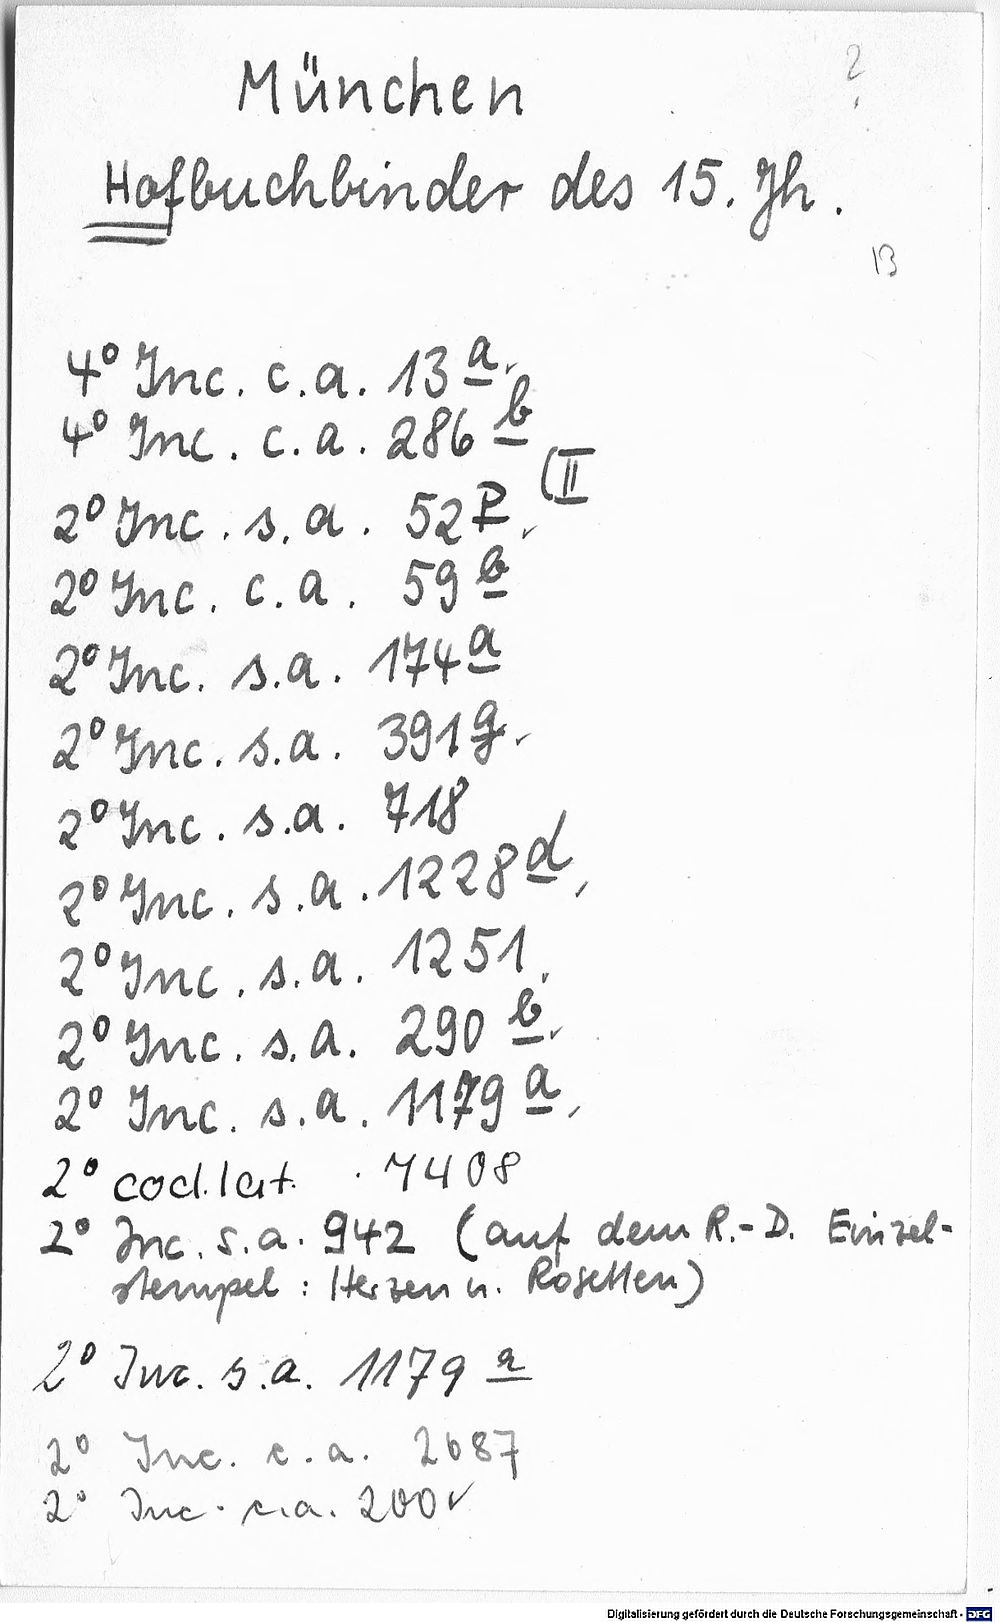 ?
München
Hofbuchbinder des 15. Jh.
13
4° Inc. c.a. 13 a
4° Inc. c.a. 286 b
(II
2° Inc. s.a. 52 P
2° Inc. c.a. 59 b
2° Inc. s.a. 174 a
2° Inc. s.a. 391 g
2° Inc. s.a. 718
2° Inc. s.a. 1228 d
2° Inc. s.a. 1251
2° Inc. s.a. 290 b
2° Inc. s.a. 1179 a
2° cod. lat. 7408
2° Inc. s.a. 942 (auf dem R.-D. Einzel-
stempel: Herzen u. Rosetten)
2° Inc. s.a. 1179 a
2° Inc. c.a. 2687
2° Inc. c.a. 200 ✓
Digitalisierung gefördert durch die Deutsche Forschungsgemeinschaft - DFG